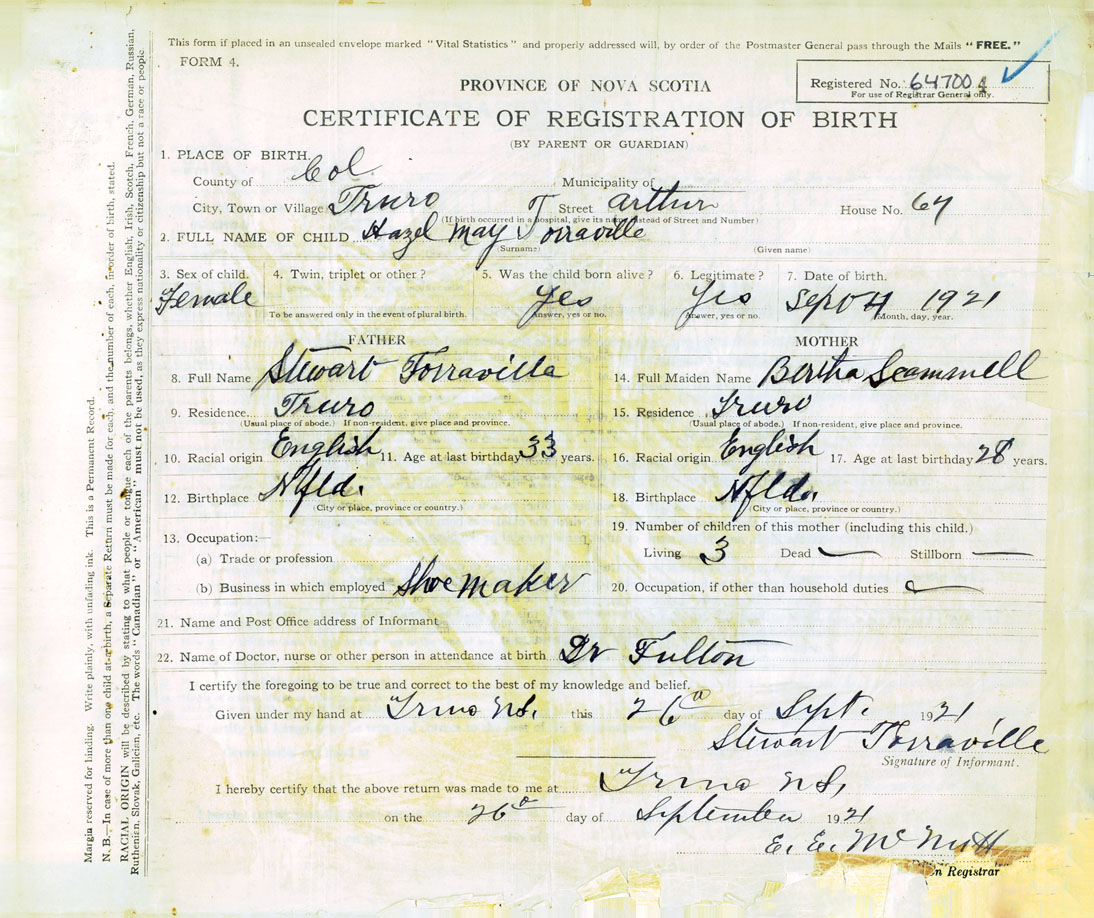 This form if placed in an unsealed envelope marked "Vital Statistics" and properly addressed will, by order of the Postmaster General pass through the Mails "FREE."
FORM 4.
Registered No. 64700
For use of Registrar General only.
PROVINCE OF NOVA SCOTIA
CERTIFICATE OF REGISTRATION OF BIRTH
(BY PARENT OR GUARDIAN)
1. PLACE OF BIRTH.
County of Col Municipality of
City, Town or Village Truro Street Arthur House No. 64
(If birth occurred in a hospital, give its name instead of Street and Number)
2. FULL NAME OF CHILD Hazel May Torraville
(Surname) (Given name)
3. Sex of child. 4. Twin, triplet or other? 5. Was the child born alive? 6. Legitimate? 7. Date of birth.
Female Yes Yes Sept 4 1921
To be answered only in the event of plural birth. Answer, yes or no. Answer, yes or no. Month, day, year.
FATHER
8. Full Name Stewart Torraville
9. Residence. Truro
(Usual place of abode.) If non-resident, give place and province.
10. Racial origin English 11. Age at last birthday 33 years.
12. Birthplace Nfld.
(City or place, province or country.)
13. Occupation:—
(a) Trade or profession
(b) Business in which employed Shoemaker
MOTHER
14. Full Maiden Name Bertha Scammell
15. Residence Truro
(Usual place of abode.) If non-resident, give place and province.
16. Racial origin English 17. Age at last birthday 28 years.
18. Birthplace Nfld.
(City or place, province or country.)
19. Number of children of this mother (including this child.)
Living 3 Dead — Stillborn —
20. Occupation, if other than household duties
21. Name and Post Office address of Informant
22. Name of Doctor, nurse or other person in attendance at birth Dr Fulton
I certify the foregoing to be true and correct to the best of my knowledge and belief.
Given under my hand at Truro N.S. this 26th day of Sept. 1921
Stewart Torraville
Signature of Informant.
I hereby certify that the above return was made to me at Truro N.S.
on the 26th day of September 1921
E. E. McNutt
n Registrar
Margin reserved for binding. Write plainly, with unfading ink. This is a Permanent Record.
N. B.—In case of more than one child at a birth, a Separate Return must be made for each, and the number of each, in order of birth, stated.
RACIAL ORIGIN will be described by stating to what people or tongue each of the parents belongs, whether English, Irish, Scotch, French, German, Russian,
Ruthenian, Slovak, Galician, etc. The words "Canadian" or "American" must not be used, as they express nationality or citizenship but not a race or people.